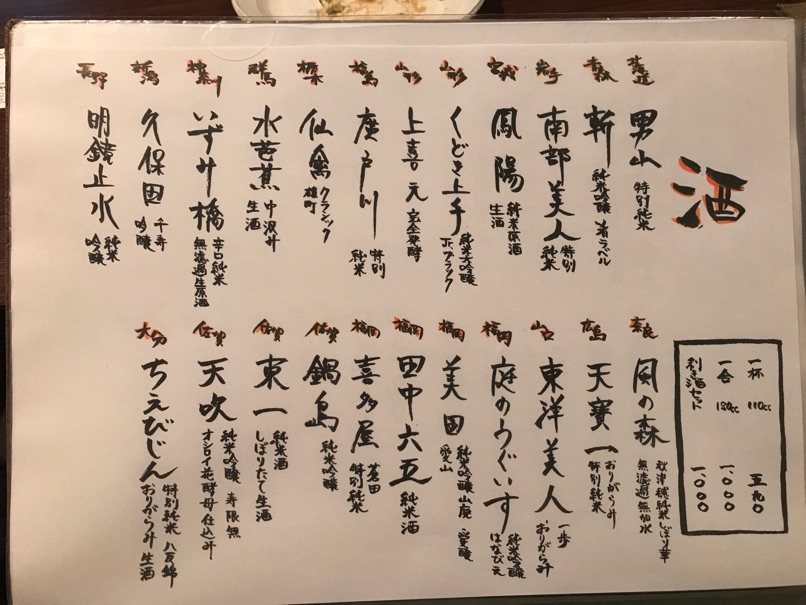 酒
北海道
男山 特別純米
青森
斬 純米吟醸 青ラベル
岩手
南部美人 特別純米
宮城
鳳陽 純米原酒 生酒
山形
くどき上手 純米大吟醸 Jr.ブラック
山形
上喜元 完全発酵
福島
廣戸川 特別純米
栃木
仙禽 クラシック 雄町
群馬
水芭蕉 中汲み 生酒
神奈川
いずみ橋 辛口純米 無濾過生原酒
新潟
久保田 千寿 吟醸
長野
明鏡止水 純米吟醸
一杯 110cc 五九〇
一合 180cc 一.〇〇〇
利き酒セット 一.〇〇〇
奈良
風の森 秋津穂純米しぼり華 無濾過無加水
広島
天寶一 おりがらみ 特別純米
山口
東洋美人 一歩 おりがらみ
福岡
庭のうぐいす 純米吟醸 はなびえ
福岡
美田 純米吟醸山廃 愛山
福岡
田中六五 純米酒
福岡
喜多屋 蒼田 特別純米
佐賀
鍋島 純米吟醸
佐賀
東一 純米酒 しぼりたて生酒
佐賀
天吹 純米吟醸 寿限無 オシロイ花酵母仕込み
大分
ちえびじん 特別純米 八反錦 おりがらみ生酒